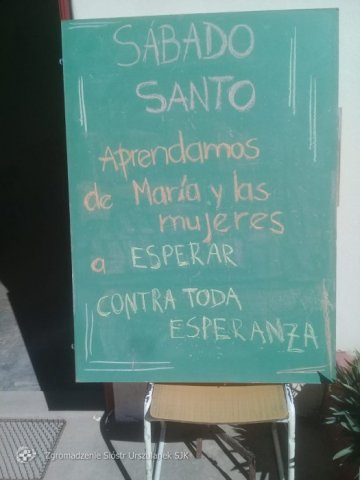 SÁBADO
SANTO
Aprendamos
de María y las
mujeres
a ESPERAR
CONTRA TODA
ESPERANZA
Zgromadzenie Sióstr Urszulanek SJK